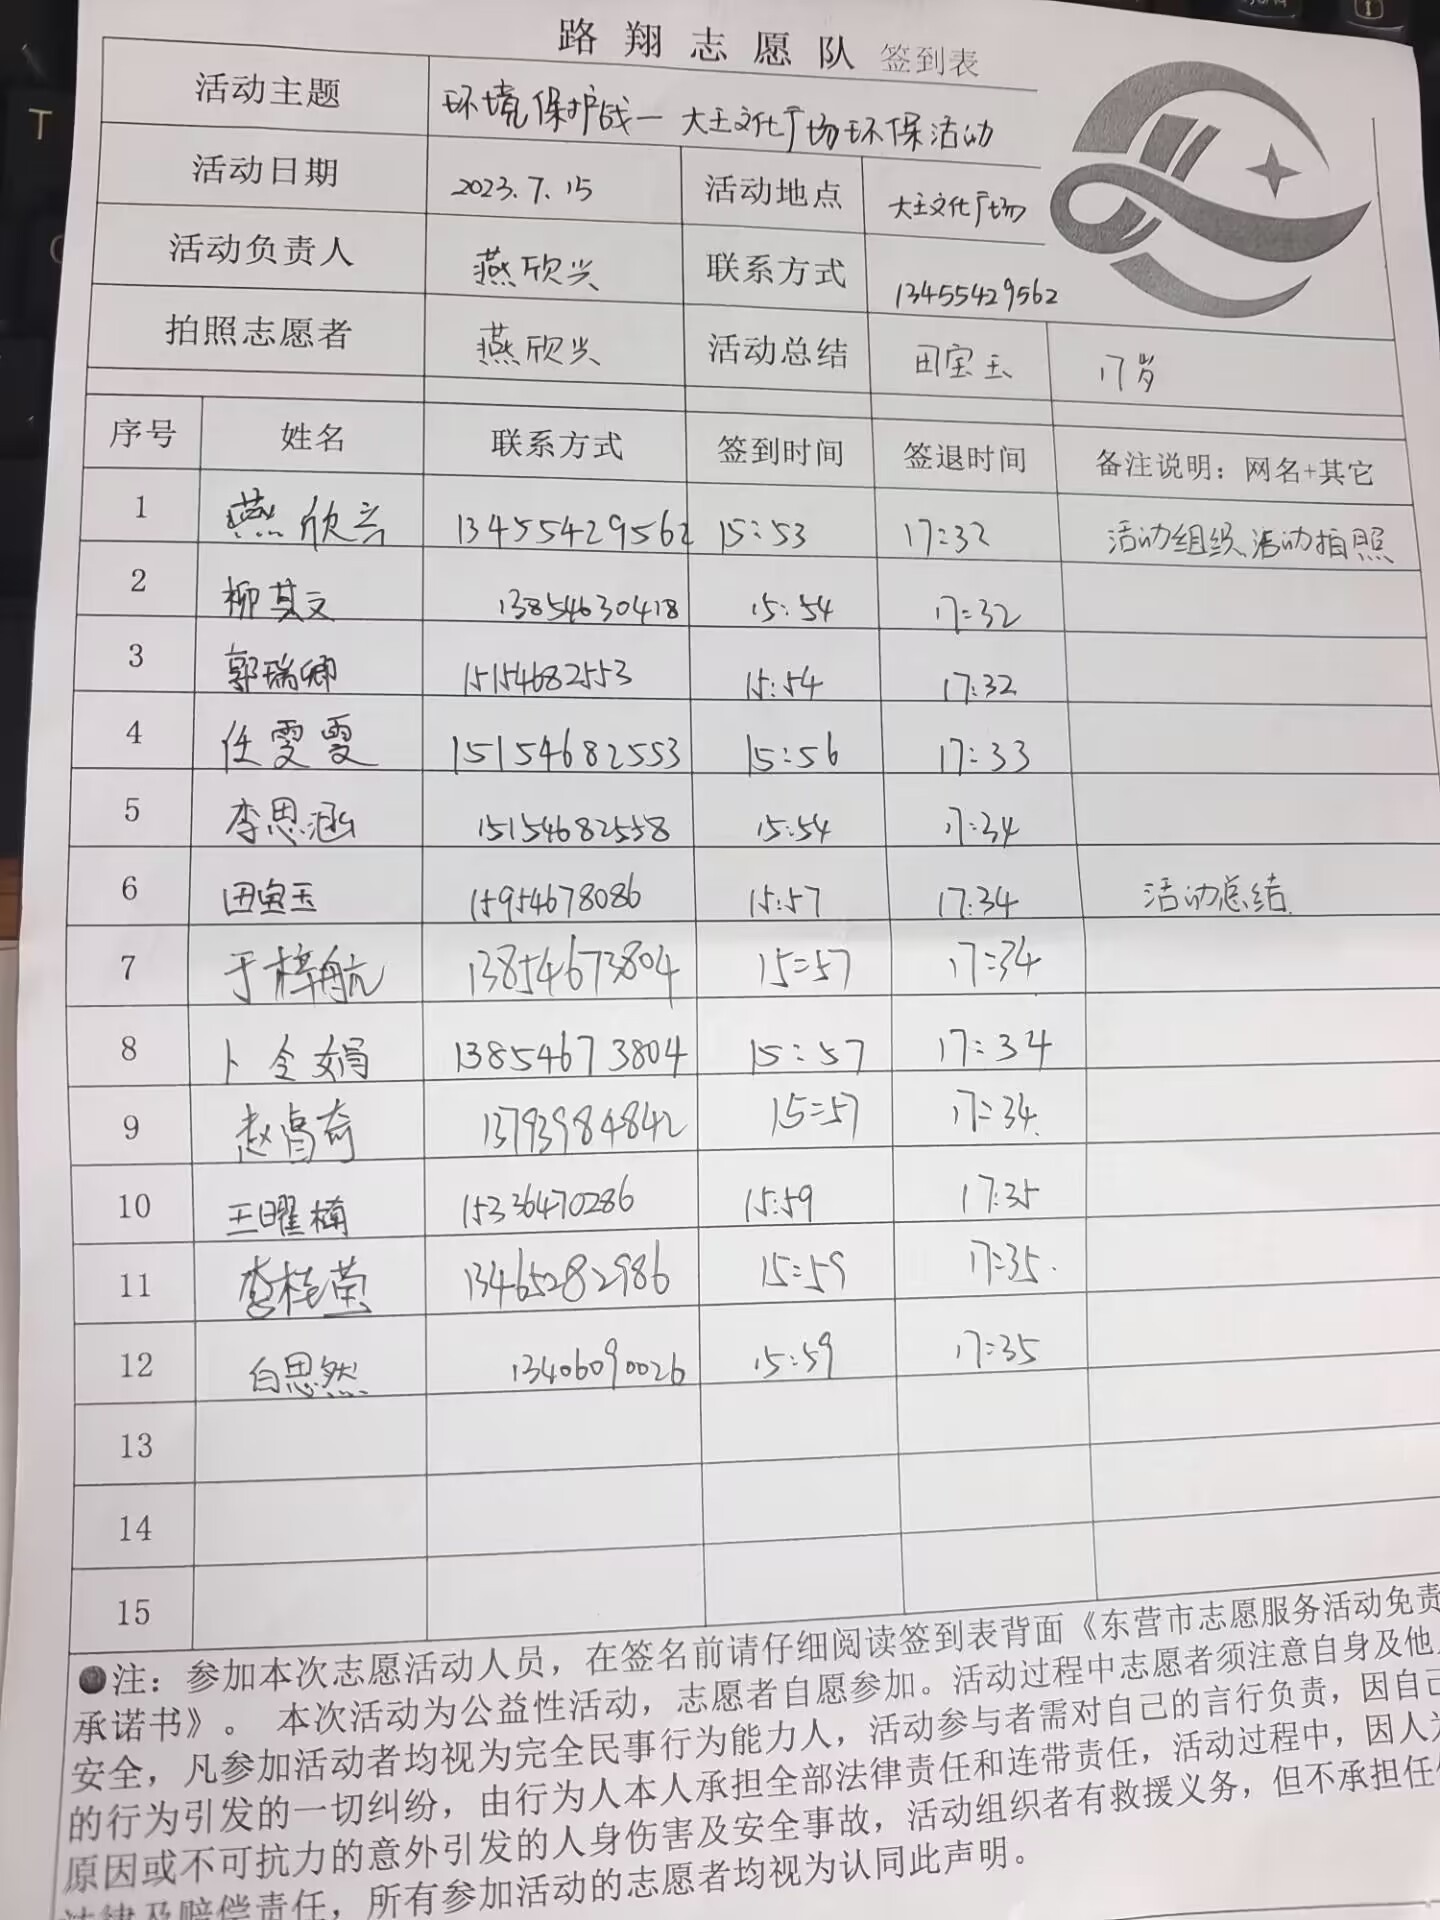 路翔志愿队 签到表
活动主题 环境保护战一 大王文化广场环保活动
活动日期 2023.7.15 活动地点 大王文化广场
活动负责人 燕欣兴 联系方式 13455429562
拍照志愿者 燕欣兴 活动总结 田宝玉 17岁
序号 姓名 联系方式 签到时间 签退时间 备注说明：网名+其它
1 燕欣兴 13455429562 15:53 17:32 活动组织、活动拍照
2 柳其文 13854630418 15:54 17:32
3 郭瑞卿 15154682553 15:54 17:32
4 任雯雯 15154682553 15:56 17:33
5 李思涵 15154682558 15:54 17:34
6 田宝玉 15954678086 15:57 17:34 活动总结.
7 于梓航 13854673804 15:57 17:34
8 卜令娟 13854673804 15:57 17:34
9 赵奇 13793984842 15:57 17:34.
10 王曜楠 15336470286 15:59 17:35
11 李桂荣 13465282986 15:59 17:35.
12 白思然 13406090026 15:59 17:35
13
14
15
●注：参加本次志愿活动人员，在签名前请仔细阅读签到表背面《东营市志愿服务活动免责
承诺书》。 本次活动为公益性活动，志愿者自愿参加。活动过程中志愿者须注意自身及他
安全，凡参加活动者均视为完全民事行为能力人，活动参与者需对自己的言行负责，因自己
的行为引发的一切纠纷，由行为人本人承担全部法律责任和连带责任，活动过程中，因人为
原因或不可抗力的意外引发的人身伤害及安全事故，活动组织者有救援义务，但不承担任
法律及赔偿责任，所有参加活动的志愿者均视为认同此声明。